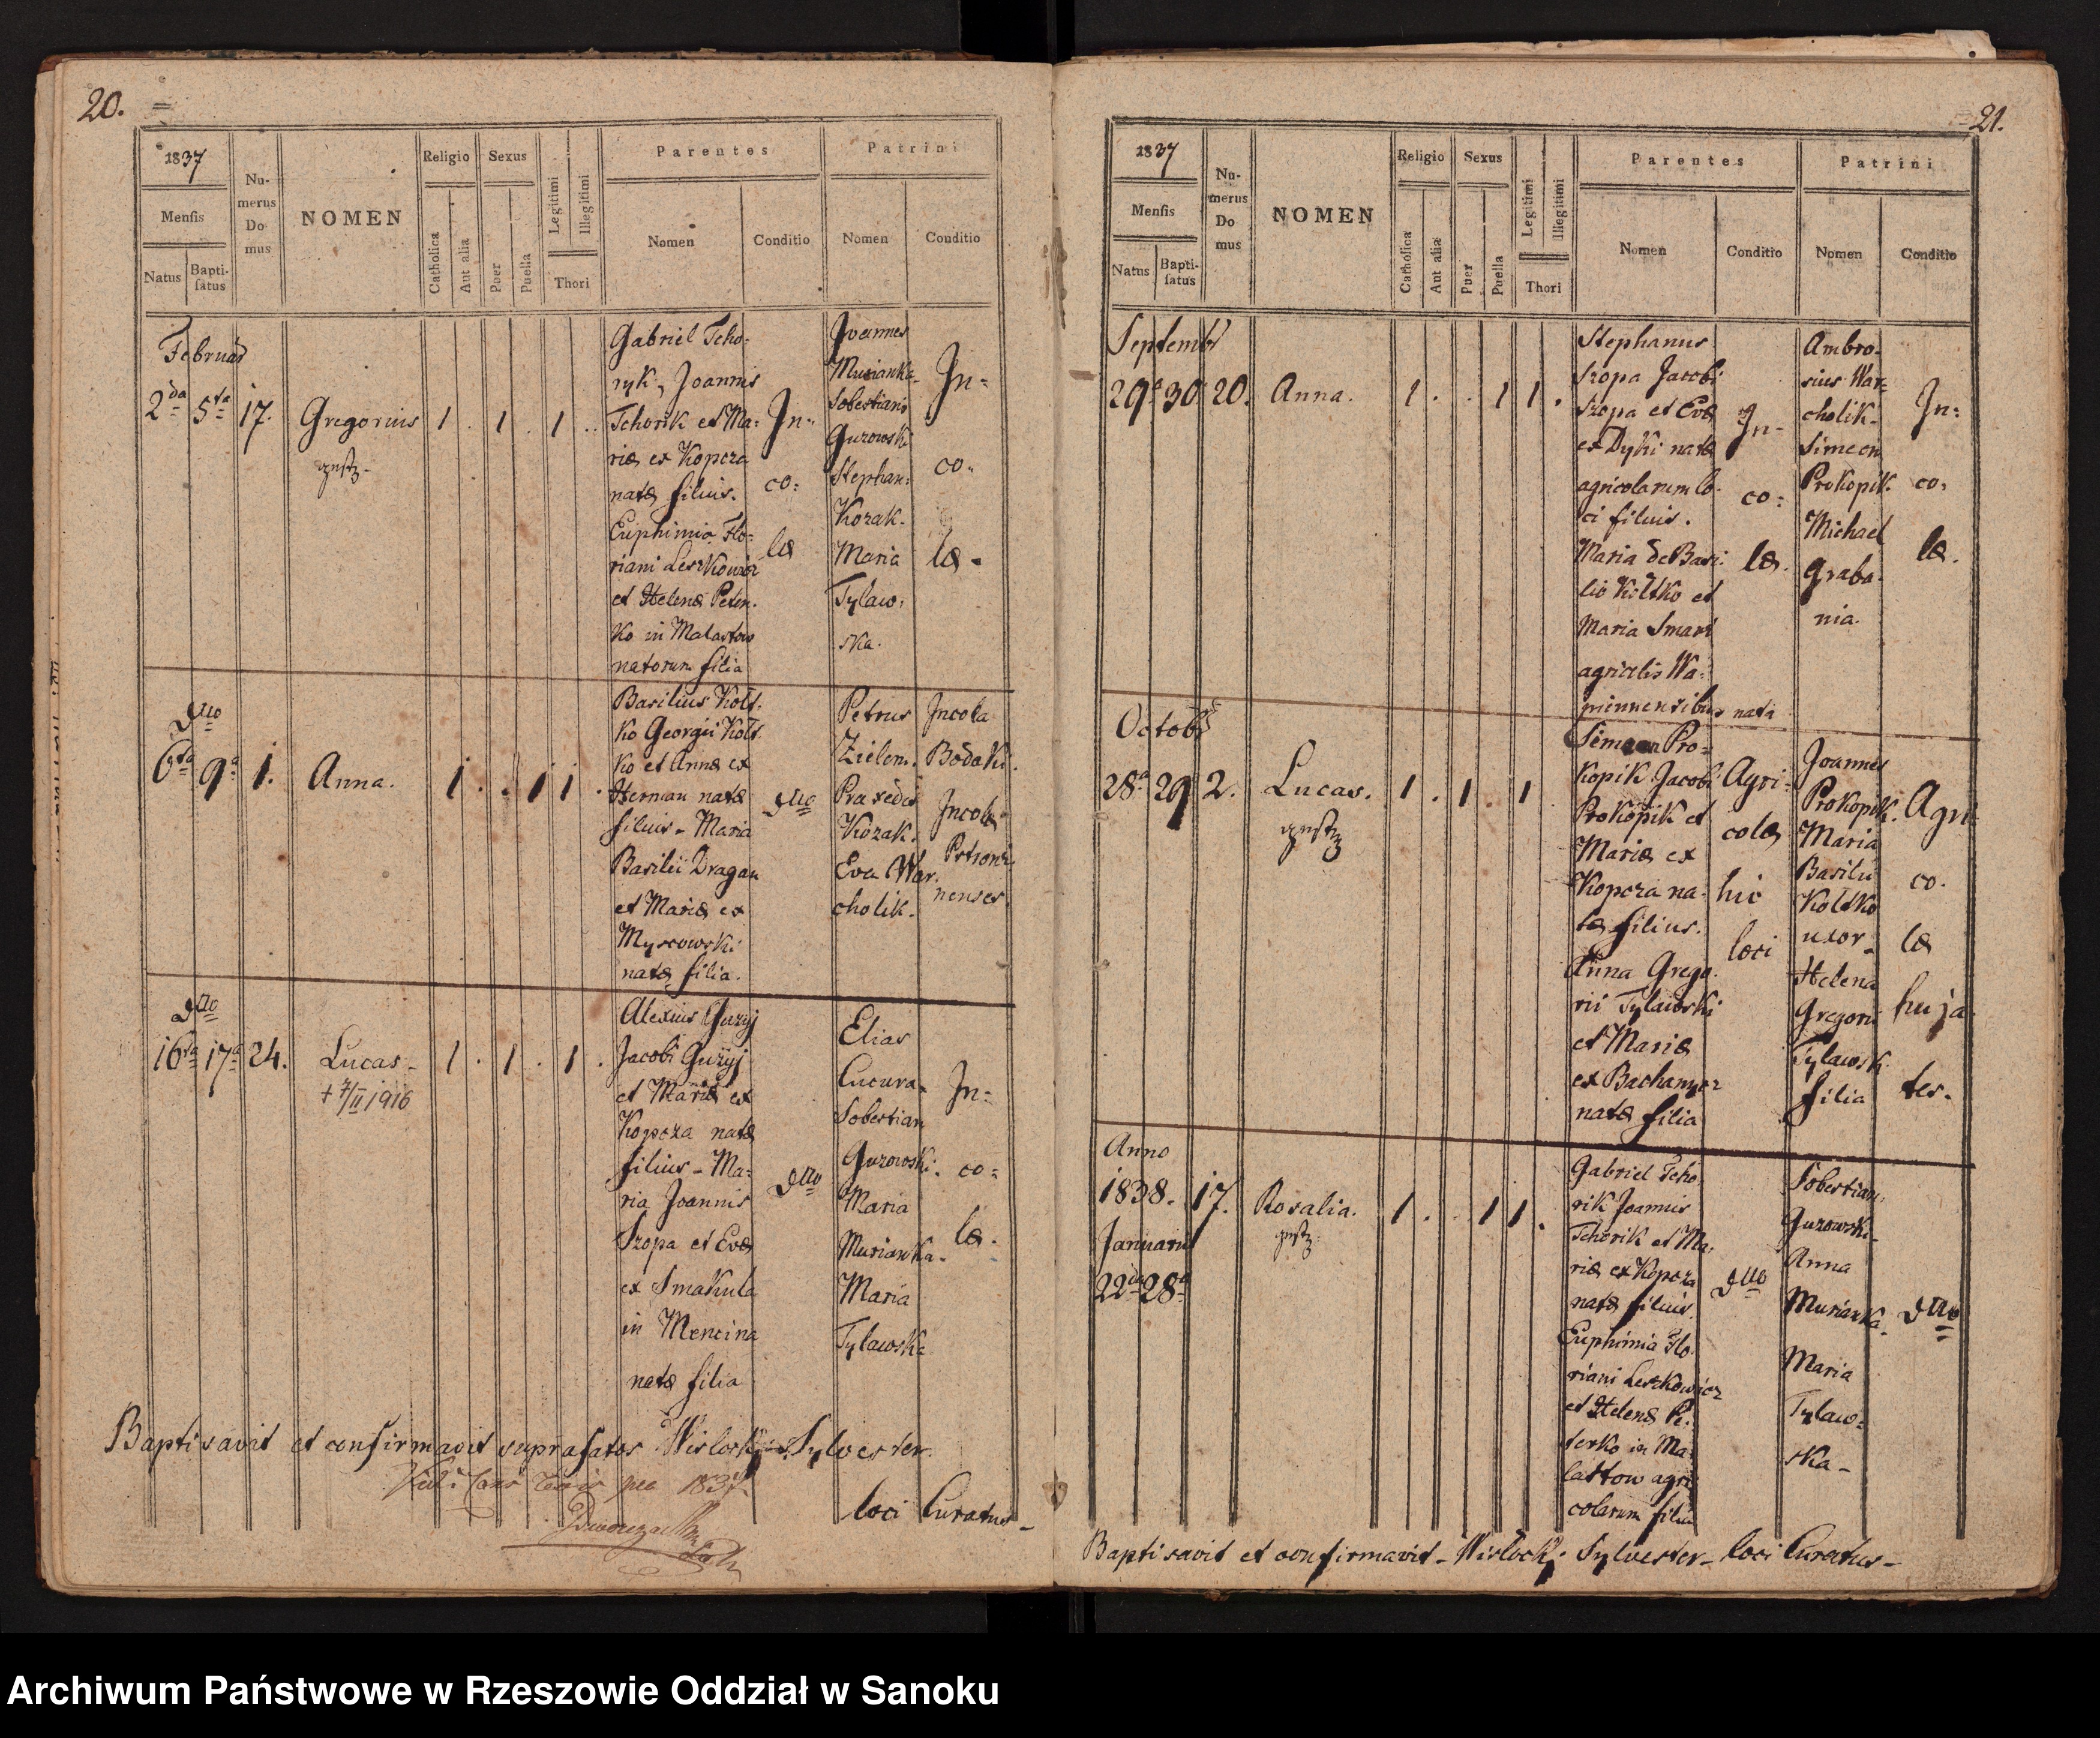 20.
1837
Mensis
Natus
Bapti-
satus
Nu-
merus
Do
mus
NOMEN
Religio
Catholica
Aut alia
Sexus
Puer
Puella
Legitimi
Illegitimi
Thori
Parentes
Nomen
Conditio
Patrini
Nomen
Conditio
Februar
2da 5ta 17. Gregorius 1 . 1 . 1 ..
Gabriel Tcho-
ryk, Joannis
Tchorik et Ma-
riæ ex Kopcza
natæ filius.
Euphimia Flo-
riani Leszkowicz
et Helenæ Peter-
ko in Malastow
natorum filia
In-
co-
læ
Joannes
Musianka-
Sobestianus
Guzowski
Stephan:
Kozak.
Maria
Tylaw-
ska.
In-
co-
læ-
Dtto
6ta 9a 1. Anna. 1 . . 1 1 .
Basilius Kolt-
ko Georgii Kolt-
ko et Annæ ex
Herman natæ
filius - Maria
Basilii Dragan
et Mariæ ex
Myscowski
natæ filia.
Dtto
Petrus
Zielen.
Praxedis
Kozak.
Eva War-
cholik.
Incola
Bodaki.
Incolæ
nenses.
Dtto
16ta 17a 24. Lucas - 1 . 1 . 1 .
+ 7/II 1916
Alexius Guzyj
Jacobi Guzyj
et Mariæ ex
Kopcza natæ
filius - Ma-
ria Joannis
Szopa et Evæ
ex Smakula
in Mencina
natæ filia
Dtto
Elias
Cucura-
Sobestian
Guzowski.
Maria
Musianka-
Maria
Tylawska
In-
co-
læ.
Baptisavit et confirmavit suprafatos Wislocki Sylvester.
1837.
loci Curatus -
21.
1837
Mensis
Natus
Bapti-
satus
Nu-
merus
Do
mus
NOMEN
Religio
Catholica
Aut alia
Sexus
Puer
Puella
Legitimi
Illegitimi
Thori
Parentes
Nomen
Conditio
Patrini
Nomen
Conditio
Septembr
29a 30 20. Anna. 1 . . 1 1 .
Stephanus
Szopa Jacobi
Szopa et Evæ
ex Dyki natæ
agricolarum lo-
ci filius.
Maria de Basi-
lio Koltko et
Maria Smary
agricolis Wa-
piennensibus nata
In-
co-
læ.
Ambro-
sius War-
cholik-
Simeon
Prokopik.
Michael
Graba-
nia.
In-
co-
læ.
Octobr
28a 29 2. Lucas. 1 . 1 . 1
Simeon Pro-
kopik Jacobi
Prokopik et
Mariæ ex
Kopcza na-
tæ filius.
Anna Grego-
rii Tylawski
et Mariæ
natæ filia
Agri-
colæ
hic
loci
Joannes
Prokopik.
Maria
Basilii
Koltko
uxor -
Helena
Gregorii
Tylawsk
filia
Agri-
co-
læ
huja-
tes.
Anno
1838. 17. Rosalia. 1 . . 1 1 .
Januarii
22da 28a
Gabriel Tcho-
rik Joannis
Tchorik et Ma-
riæ ex Kopcza
natæ filius.
Euphimia Flo-
riani Leszkowicz
et Helenæ Pe-
terko in Ma-
lastow agri
colarum filia
Dtto
Sobestian.
Guzowski-
Anna
Musianka.
Maria
Tylaw-
ska -
Dtto
Baptisavit et confirmavit - Wislocki Sylvester - loci Curatus -
Archiwum Państwowe w Rzeszowie Oddział w Sanoku